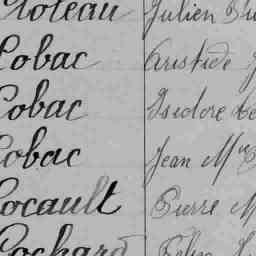 Julien
Cobac Aristide
Cobac Isidore
Cobac Jean M
Cocault Pierre M
Cochard Félix